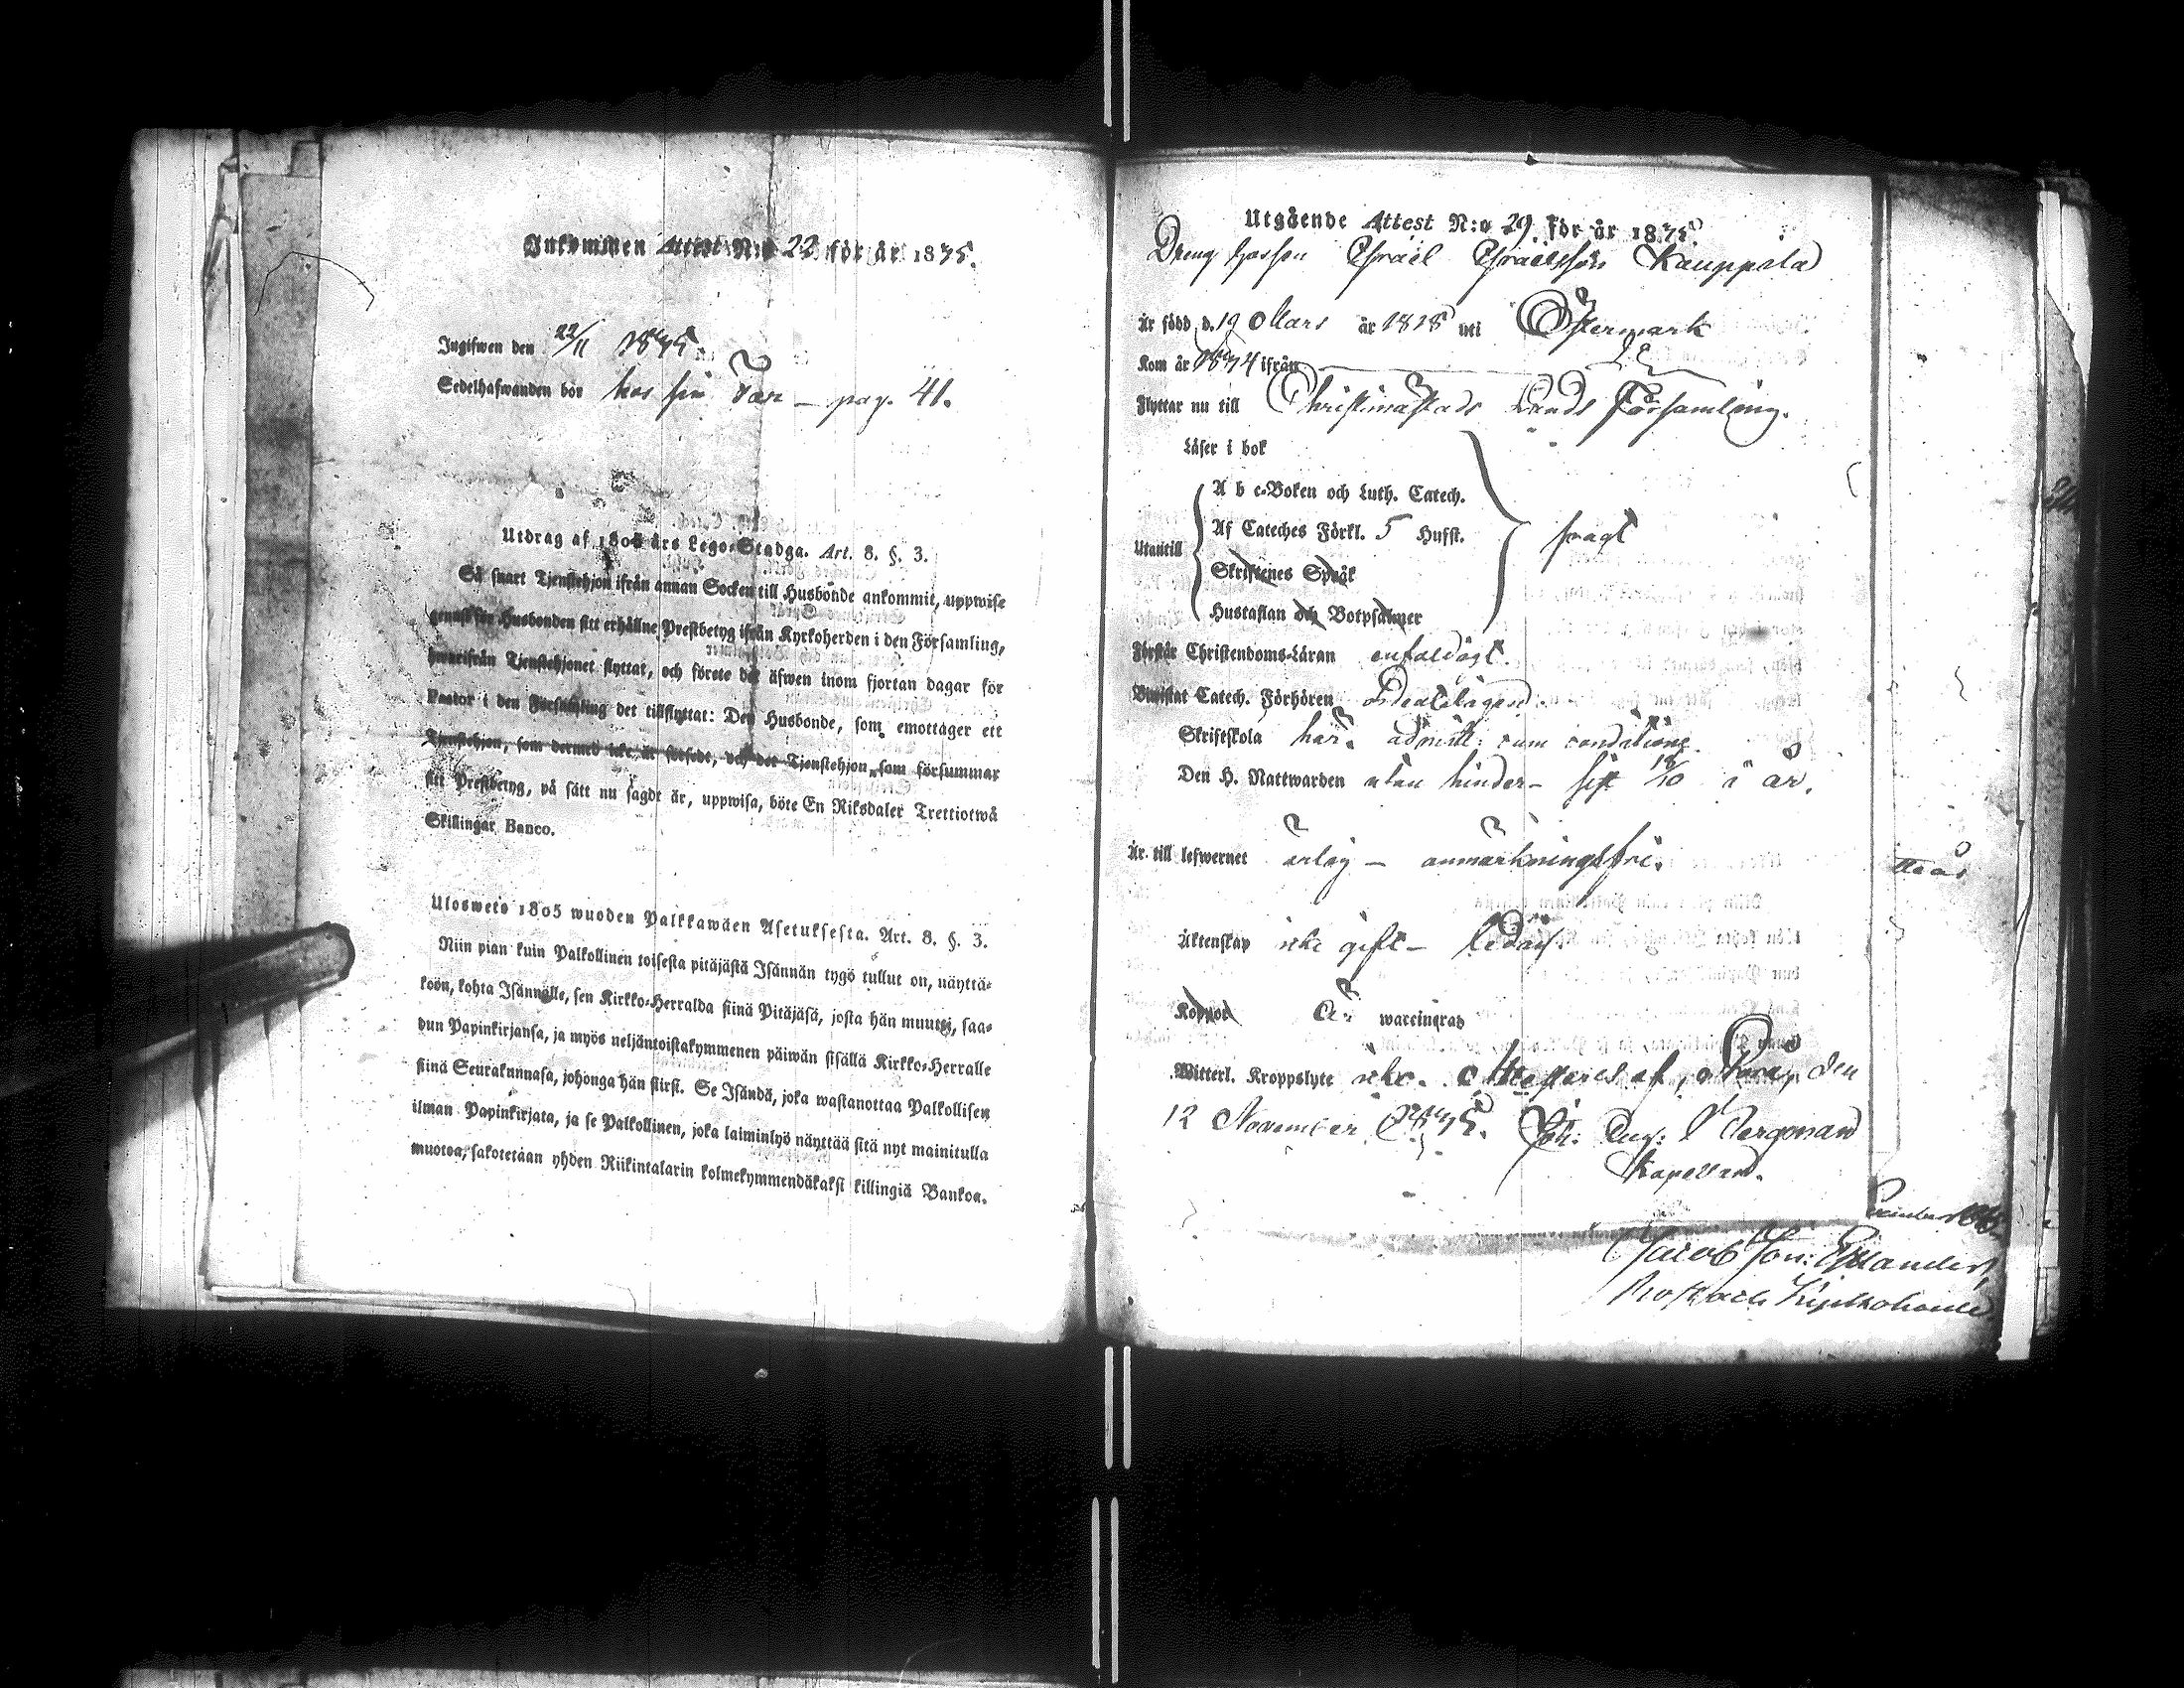 Inkommen Attest N:o 22 för år 1835.
Ingifwen den 22/11 1835.
Sedelhafwanden bor hos sin Far – pag. 41.
Utdrag af 1805 års Lego-Stadga. Art. 8. §. 3.
Så snart Tjenstehjon ifrån annan Socken till Husbonde ankommit, uppwise
genast för Husbonden sitt erhållne Prestbetyg ifrån Kyrkoherden i den Församling,
hwarifrån Tjenstehjonet flyttat, och förete det äfwen inom fjortan dagar för
Pastor i den Församling det tillflyttat: Den Husbonde, som emottager ett
Tjenstehjon, som dermed icke är försedt, och det Tjenstehjon, som försummar
sitt Prestbetyg, på sätt nu sagdt är, uppwisa, böte En Riksdaler Trettiotwå
Skillingar Banco.
Ulosweto 1805 wuoden Palkkawäen Asetuksesta. Art. 8. §. 3.
Niin pian kuin Palkollinen toisesta pitäjästä Isännän tygö tullut on, näyttä-
köön, kohta Isännälle, sen Kirkko-Herralda siinä Pitäjäsä, josta hän muutti, saa-
dun Papinkirjansa, ja myös neljäntoistakymmenen päiwän sisällä Kirkko-Herralle
siinä Seurakunnasa, johonga hän siirsi. Se Isändä, joka wastanottaa Palkollisen
ilman Papinkirjata, ja se Palkollinen, joka laiminlyö näyttää sitä nyt mainitulla
muotoa, sakotetaan yhden Riikintalarin kolmekymmendäkaksi killingiä Bankoa.
Utgående Attest N:o 29 för år 1835.
Dreng Gossen Israel Israelsson Kauppila
Är född d. 19 Mars år 1818 uti Östermark
Kom år 1834 ifrån
Flyttar nu till Christinæstads Lands Församling.
Läser i bok
A b c-Boken och Luth. Catech.
Utantill Af Cateches Förkl. 5 Hufst. svagt
Skriftenes Språk
Hustaflan och Botpsalmer
Förstår Christendoms-Läran enfaldigt.
Biwistat Catech. Förhören
Skriftskola här. admitt: cum conditione.
Den H. Nattwarden utan hinder – sist 18/10 i år.
Är till lefwernet ärlig – anmärkningsfri.
Äktenskap icke gift – ledig.
Koppor Är waccinerad
Witterl. Kroppslyte icke. Attesteras af, den
12 November 1835. Joh: Bergman
Kapellan.
Jacob Joh: